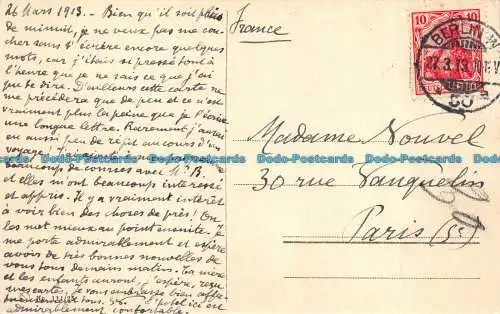 26 Mars 1913. – Bien qu'il soit plus
de minuit, je ne veux pas me cou-
cher sans t'écrire encore quelques
mots, car j'étais si pressé tout à
l'heure que je ne sais ce que j'ai
pu te dire. D'ailleurs cette carte ne
me précédera que de peu et ce n'est
vraiment plus la peine que j'écrive
une longue lettre. Rarement j'aurai
eu aussi peu de répit au cours d'un
voyage!
beaucoup de courses avec Mr B.
et elles m'ont beaucoup intéressé
et appris. Il y a vraiment intérêt
à voir bien des choses de près! On
les met mieux au point ensuite. Je
me porte admirablement et espère
avoir de très bonnes nouvelles de
vous tous demain matin. Ta mère
et les enfants auront, j'espère, reçu
mes cartes. Je vous embrasse bien affec-
tueusement tous. L'hôtel ici est
admirablement confortable.
France
Madame Nouvel
30 rue Vauquelin
Paris (5e)
10 10
BERLIN W
27.3.13
50
Dodo-Postcards Dodo-Postcards Dodo-Postcards Dodo-Postcards